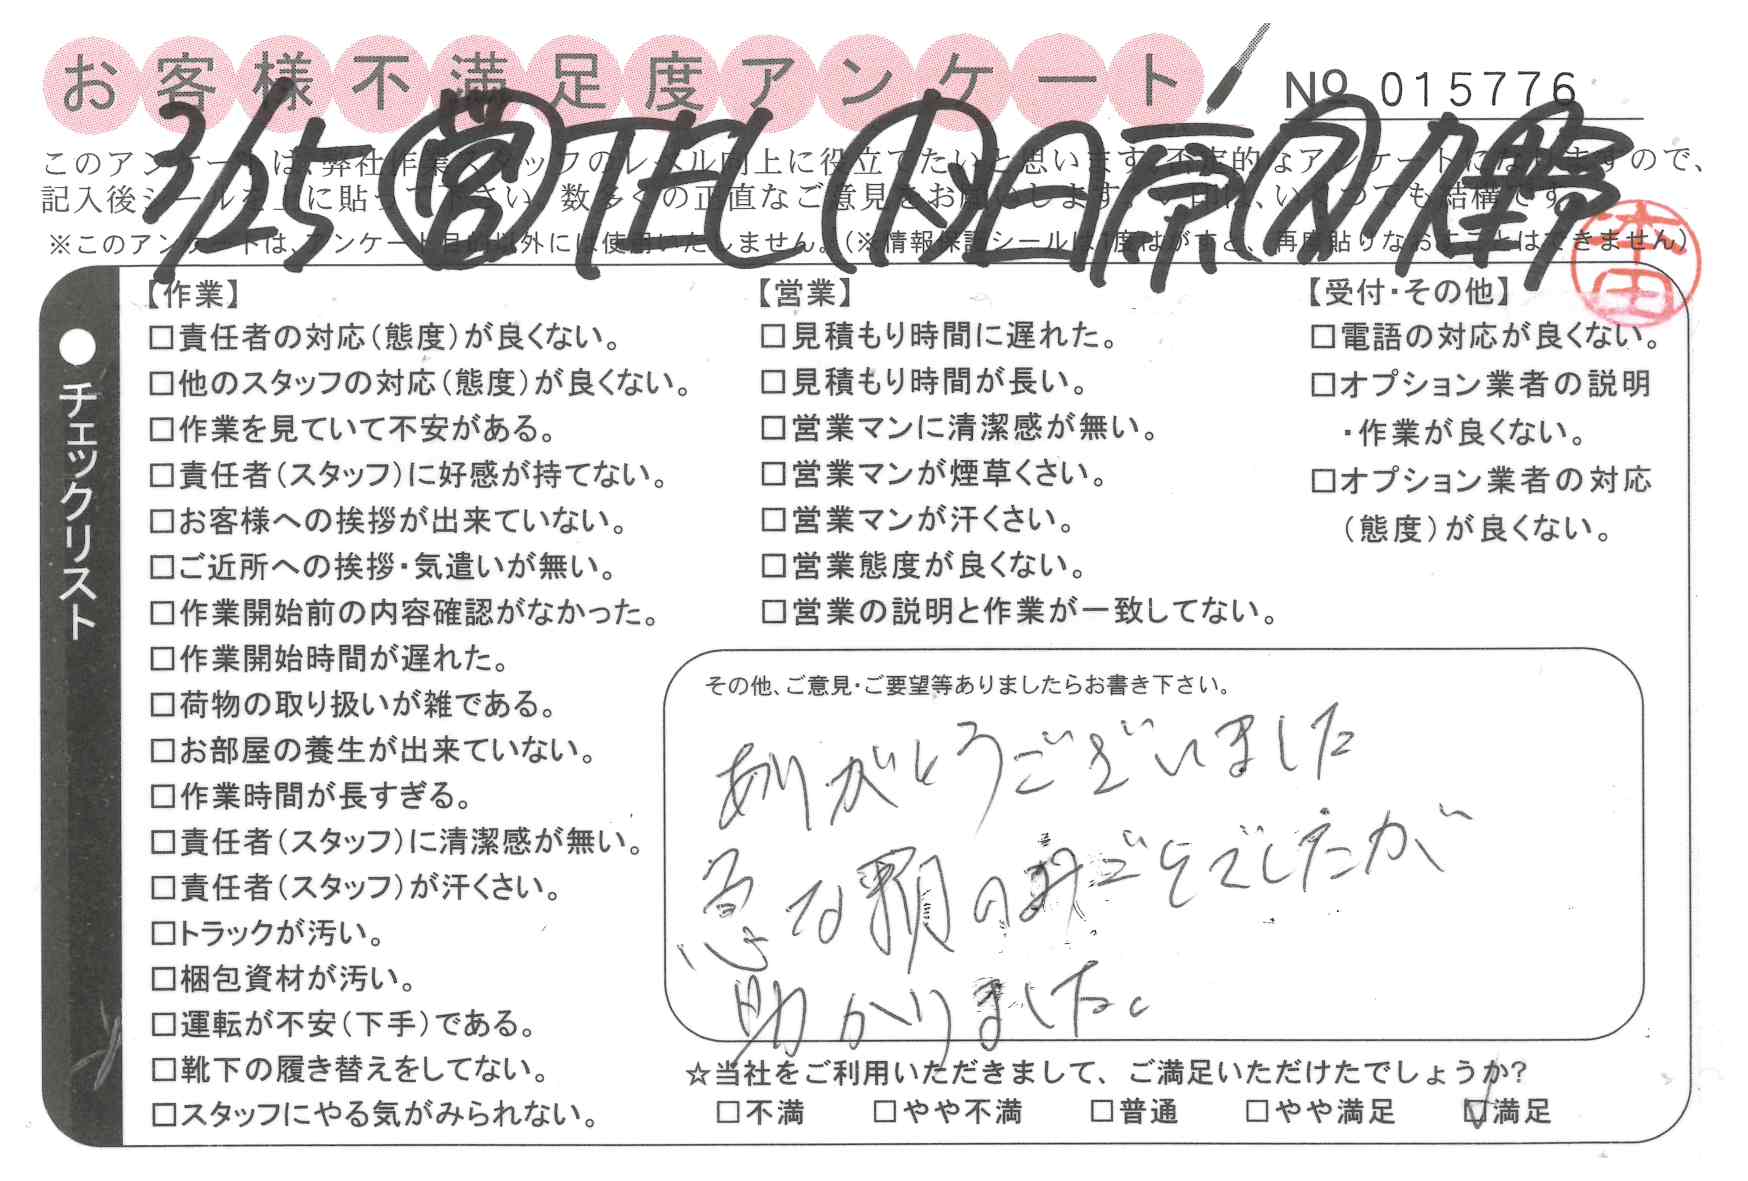 お客様不満足度アンケート
No 015776
3/25 営 TEL 内田 原 内 佐野
このアンケートは、弊社作業スタッフのレベル向上に役立てたいと思います。不定的なアンケートになりますので、
記入後シールを上に貼って下さい。数多くの正直なご意見をお願いします。
※このアンケートは、アンケート目的以外には使用いたしません。(※情報保護シールは1度はがすと、再度貼りなおすことはできません)
本田
●チェックリスト
【作業】
□責任者の対応(態度)が良くない。
□他のスタッフの対応(態度)が良くない。
□作業を見ていて不安がある。
□責任者(スタッフ)に好感が持てない。
□お客様への挨拶が出来ていない。
□ご近所への挨拶・気遣いが無い。
□作業開始前の内容確認がなかった。
□作業開始時間が遅れた。
□荷物の取り扱いが雑である。
□お部屋の養生が出来ていない。
□作業時間が長すぎる。
□責任者(スタッフ)に清潔感が無い。
□責任者(スタッフ)が汗くさい。
□トラックが汚い。
□梱包資材が汚い。
□運転が不安(下手)である。
□靴下の履き替えをしてない。
□スタッフにやる気がみられない。
【営業】
□見積もり時間に遅れた。
□見積もり時間が長い。
□営業マンに清潔感が無い。
□営業マンが煙草くさい。
□営業マンが汗くさい。
□営業態度が良くない。
□営業の説明と作業が一致してない。
【受付・その他】
□電語の対応が良くない。
□オプション業者の説明
・作業が良くない。
□オプション業者の対応
(態度)が良くない。
その他、ご意見・ご要望等ありましたらお書き下さい。
ありがとうございました
急な
でしたが
助かりました。
☆当社をご利用いただきまして、ご満足いただけたでしょうか?
□不満 □やや不満 □普通 □やや満足 ☑満足